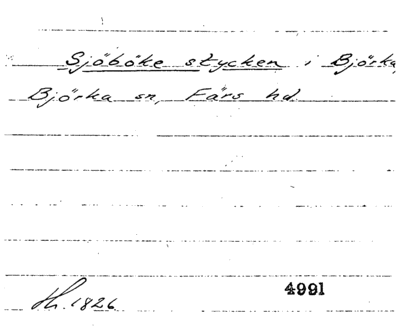 Sjöböke stycken i Björka,
Björka sn, Färs hd
Hh. 1826
4991